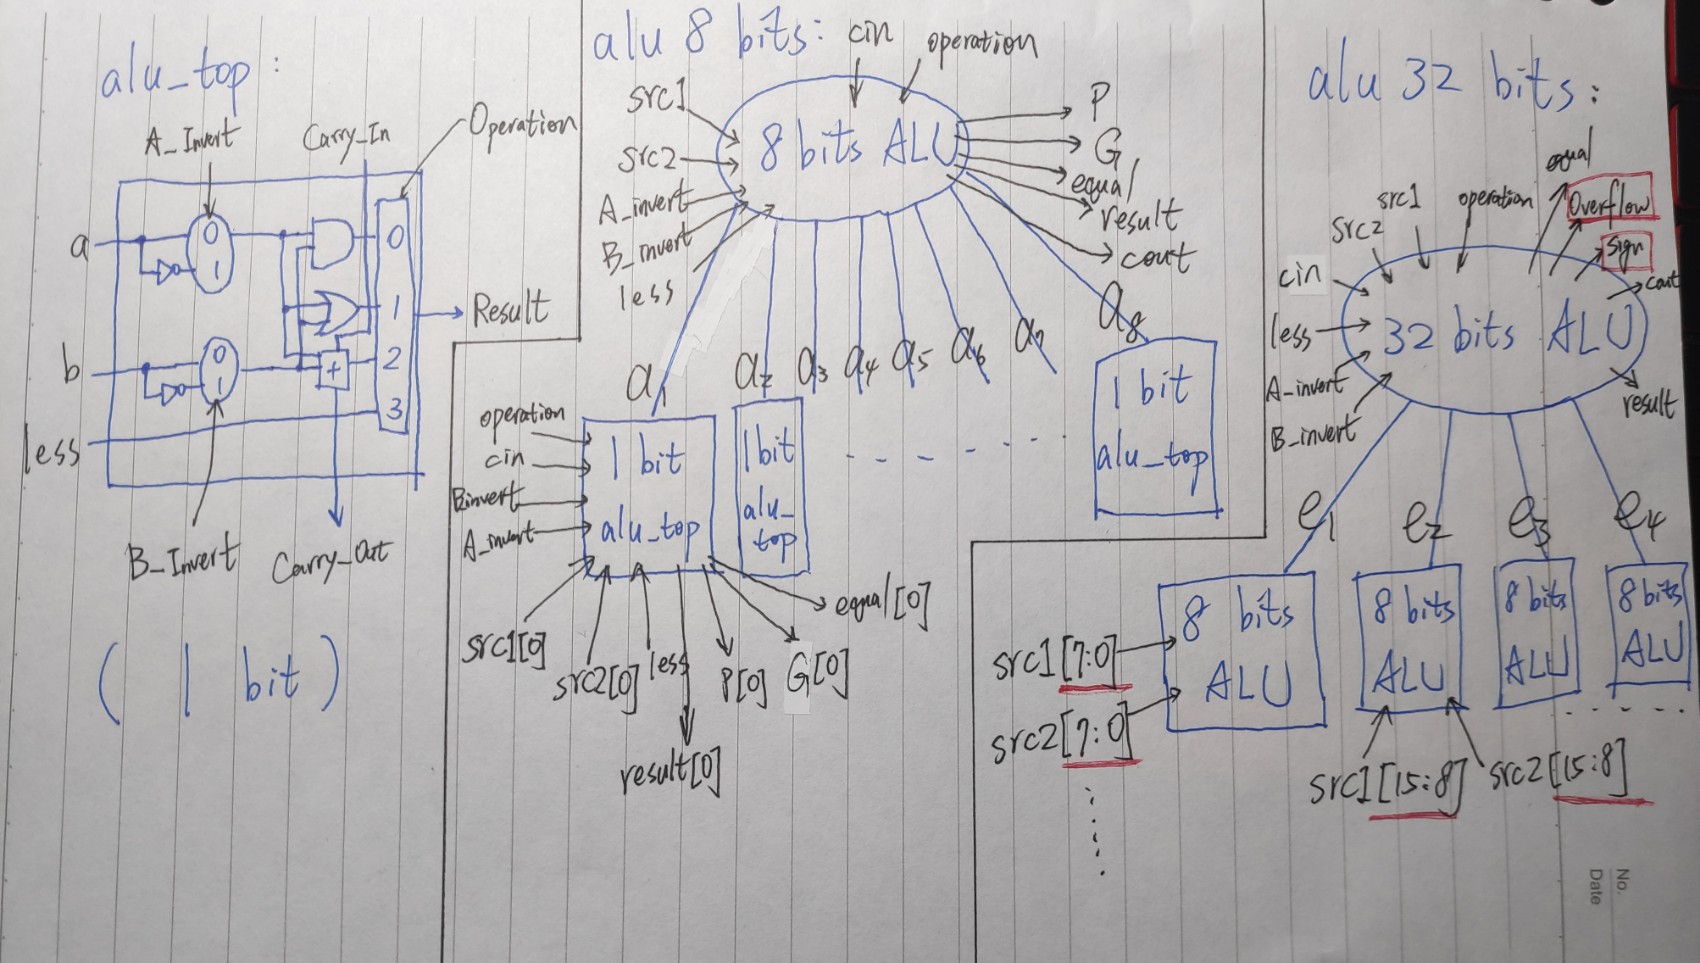 alu_top:
A_Invert
Carry_In
Operation
a
0
1
0
1
Result
b
0
1
+
2
3
less
B_Invert
Carry_Out
( 1 bit )
alu 8 bits:
cin
operation
src1
src2
A_invert
B_invert
less
8 bits ALU
P
G
equal
result
cout
a1
a2
a3
a4
a5
a6
a7
a8
operation
cin
Binvert
A_invert
1 bit
alu_top
1 bit
alu_
top
- - - - ...
1 bit
alu_top
src1[0]
src2[0]
less
result[0]
P[0]
G[0]
equal[0]
alu 32 bits:
equal
Overflow
sign
cout
src1
src2
operation
cin
less
A_invert
B_invert
32 bits ALU
result
e1
e2
e3
e4
8 bits
ALU
8 bits
ALU
8 bits
ALU
8 bits
ALU
src1[7:0]
src2[7:0]
src1[15:8]
src2[15:8]
No.
Date